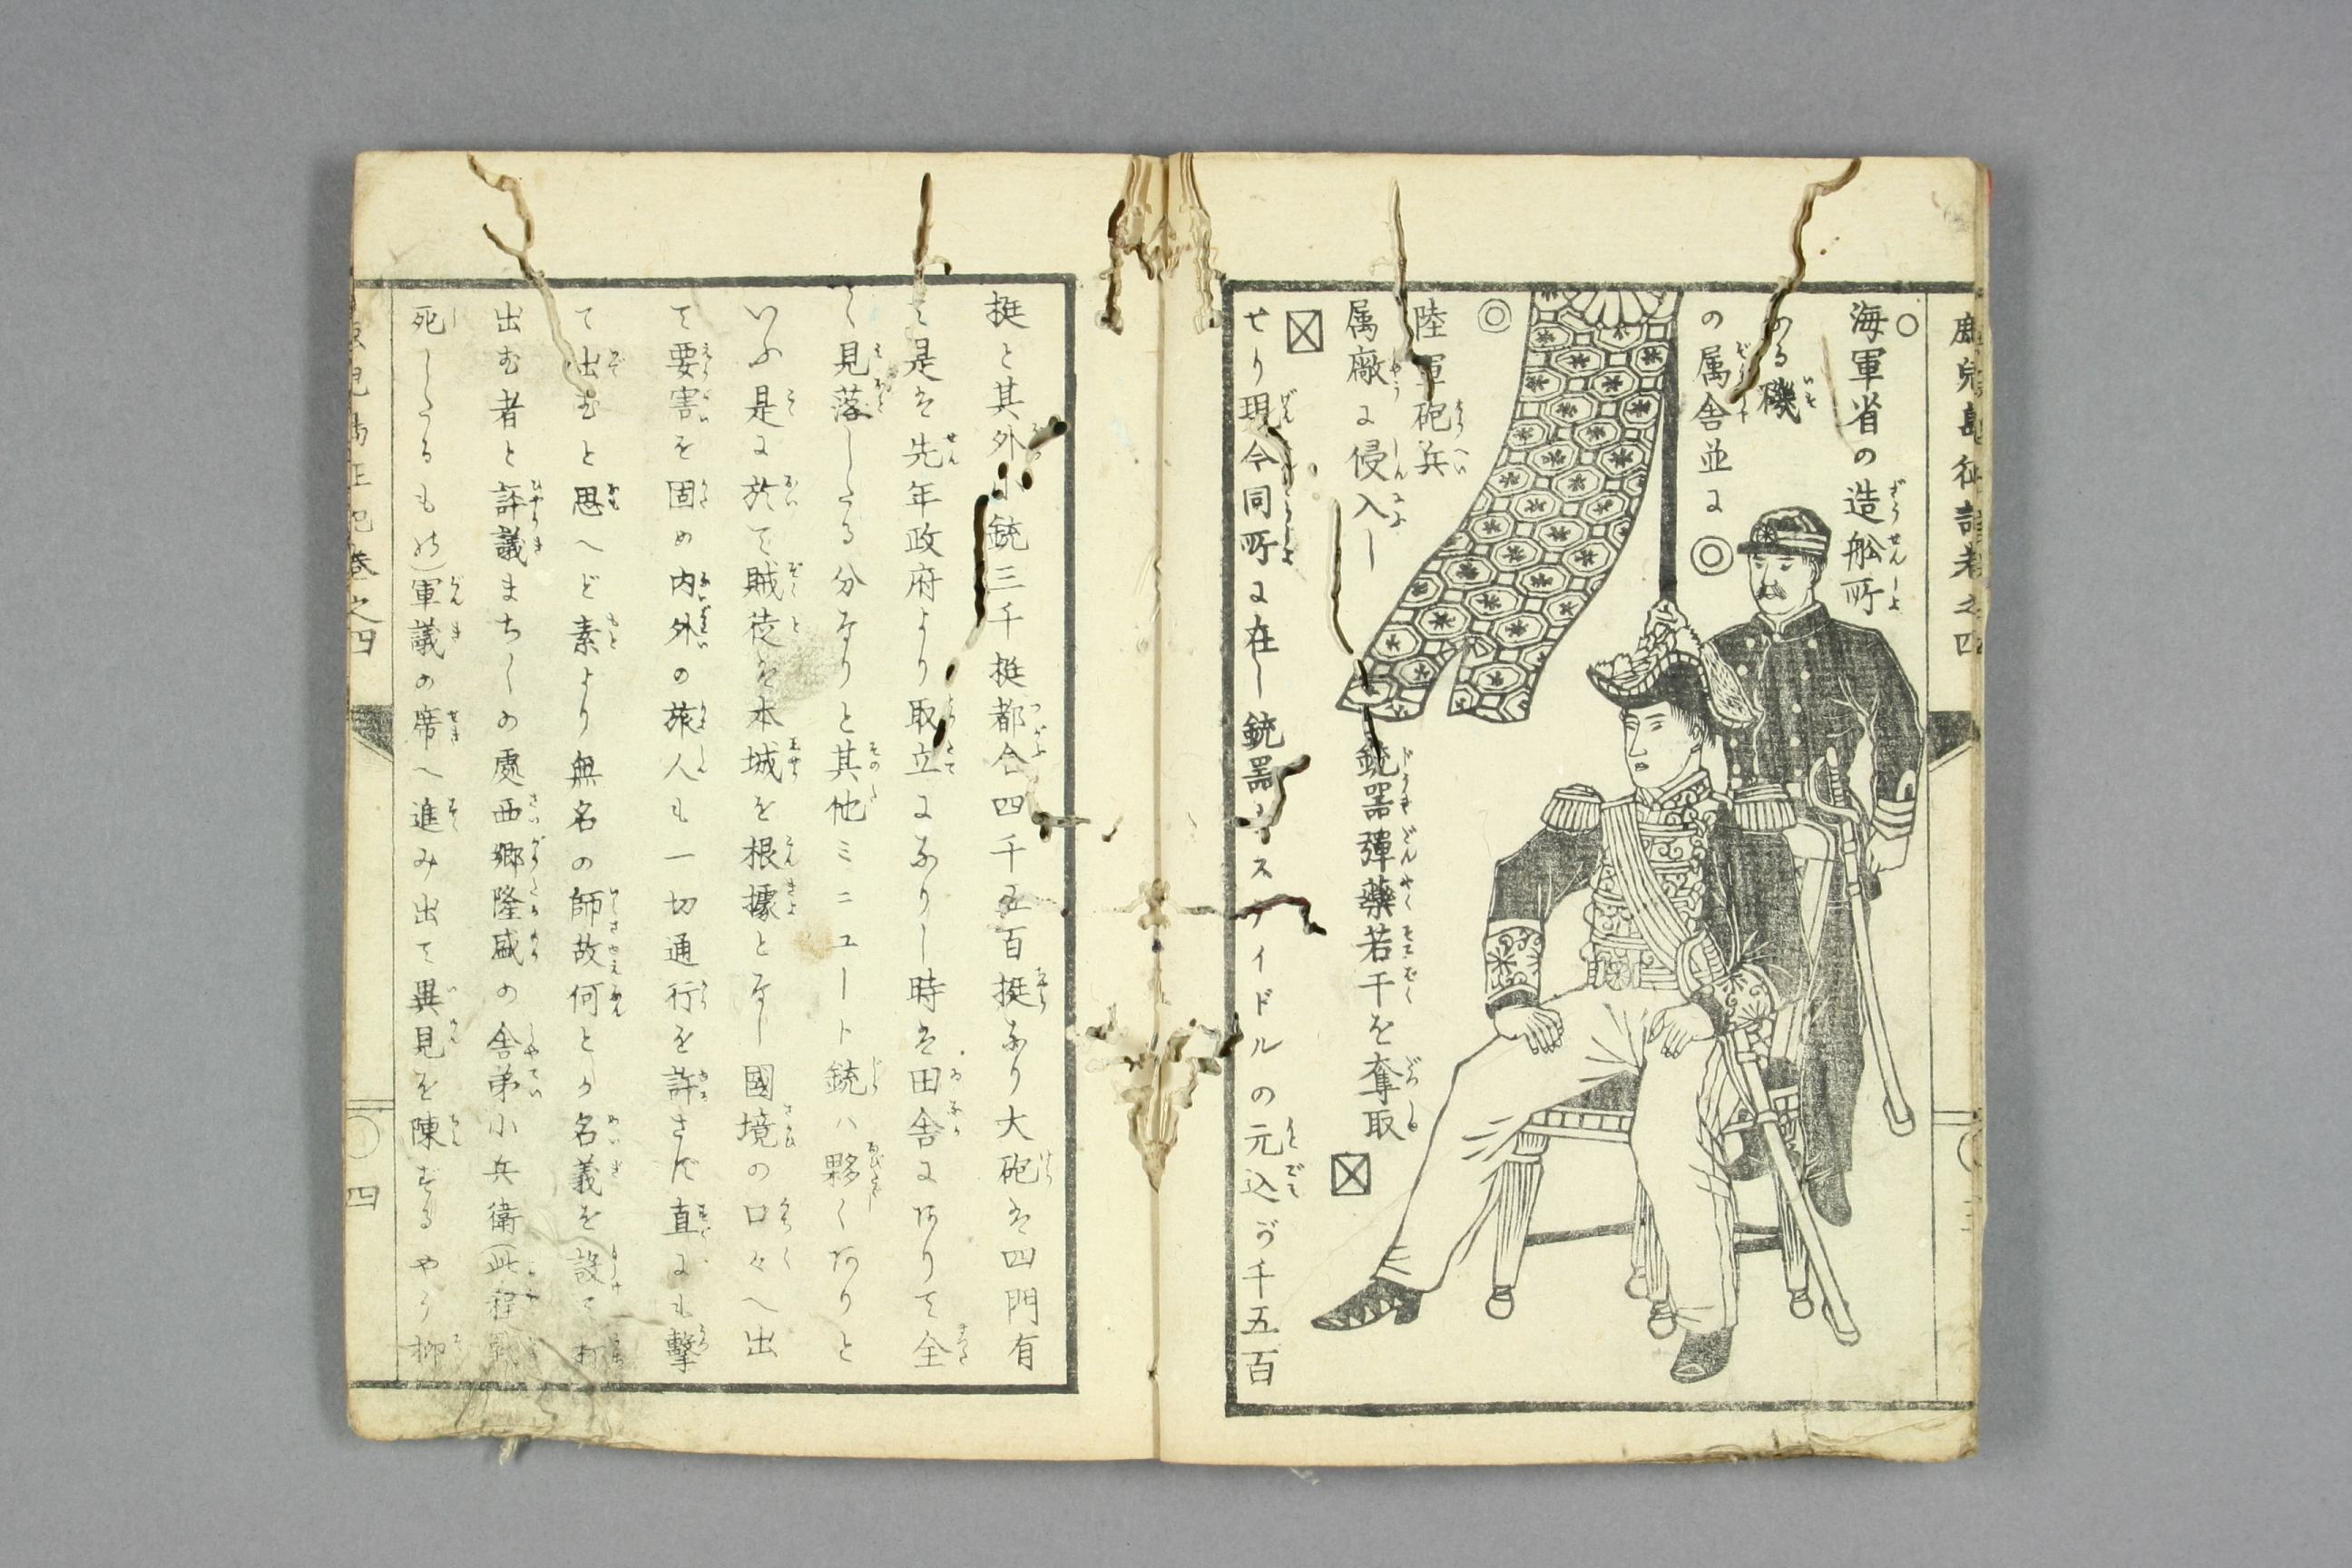 鹿兒島征討記巻之四
○
海軍省の造舩所
ある磯
の属舎並に
◎
◎
陸軍砲兵
属廠に侵入し
銃器彈藥若干を奪取
せり現今同所に在し銃器はスナイドルの元込が千五百
挺と其外小銃三千挺都合四千五百挺あり大砲は四門有
て是は先年政府より取立になりし時は田舎にありて全
く見落したる分なりと其他ミニユート銃ハ夥くありと
いふ是に於て賊徒は本城を根據となし國境の口々へ出
て要害を固め内外の旅人も一切通行を許さず直にも擊
て出むと思へど素より無名の師故何とか名義を設て打
出む者と評議まちしの處西郷隆盛の舎弟小兵衛(此程戰
死したるもの)軍議の席へ進み出て異見を陳ずるやう抑
四